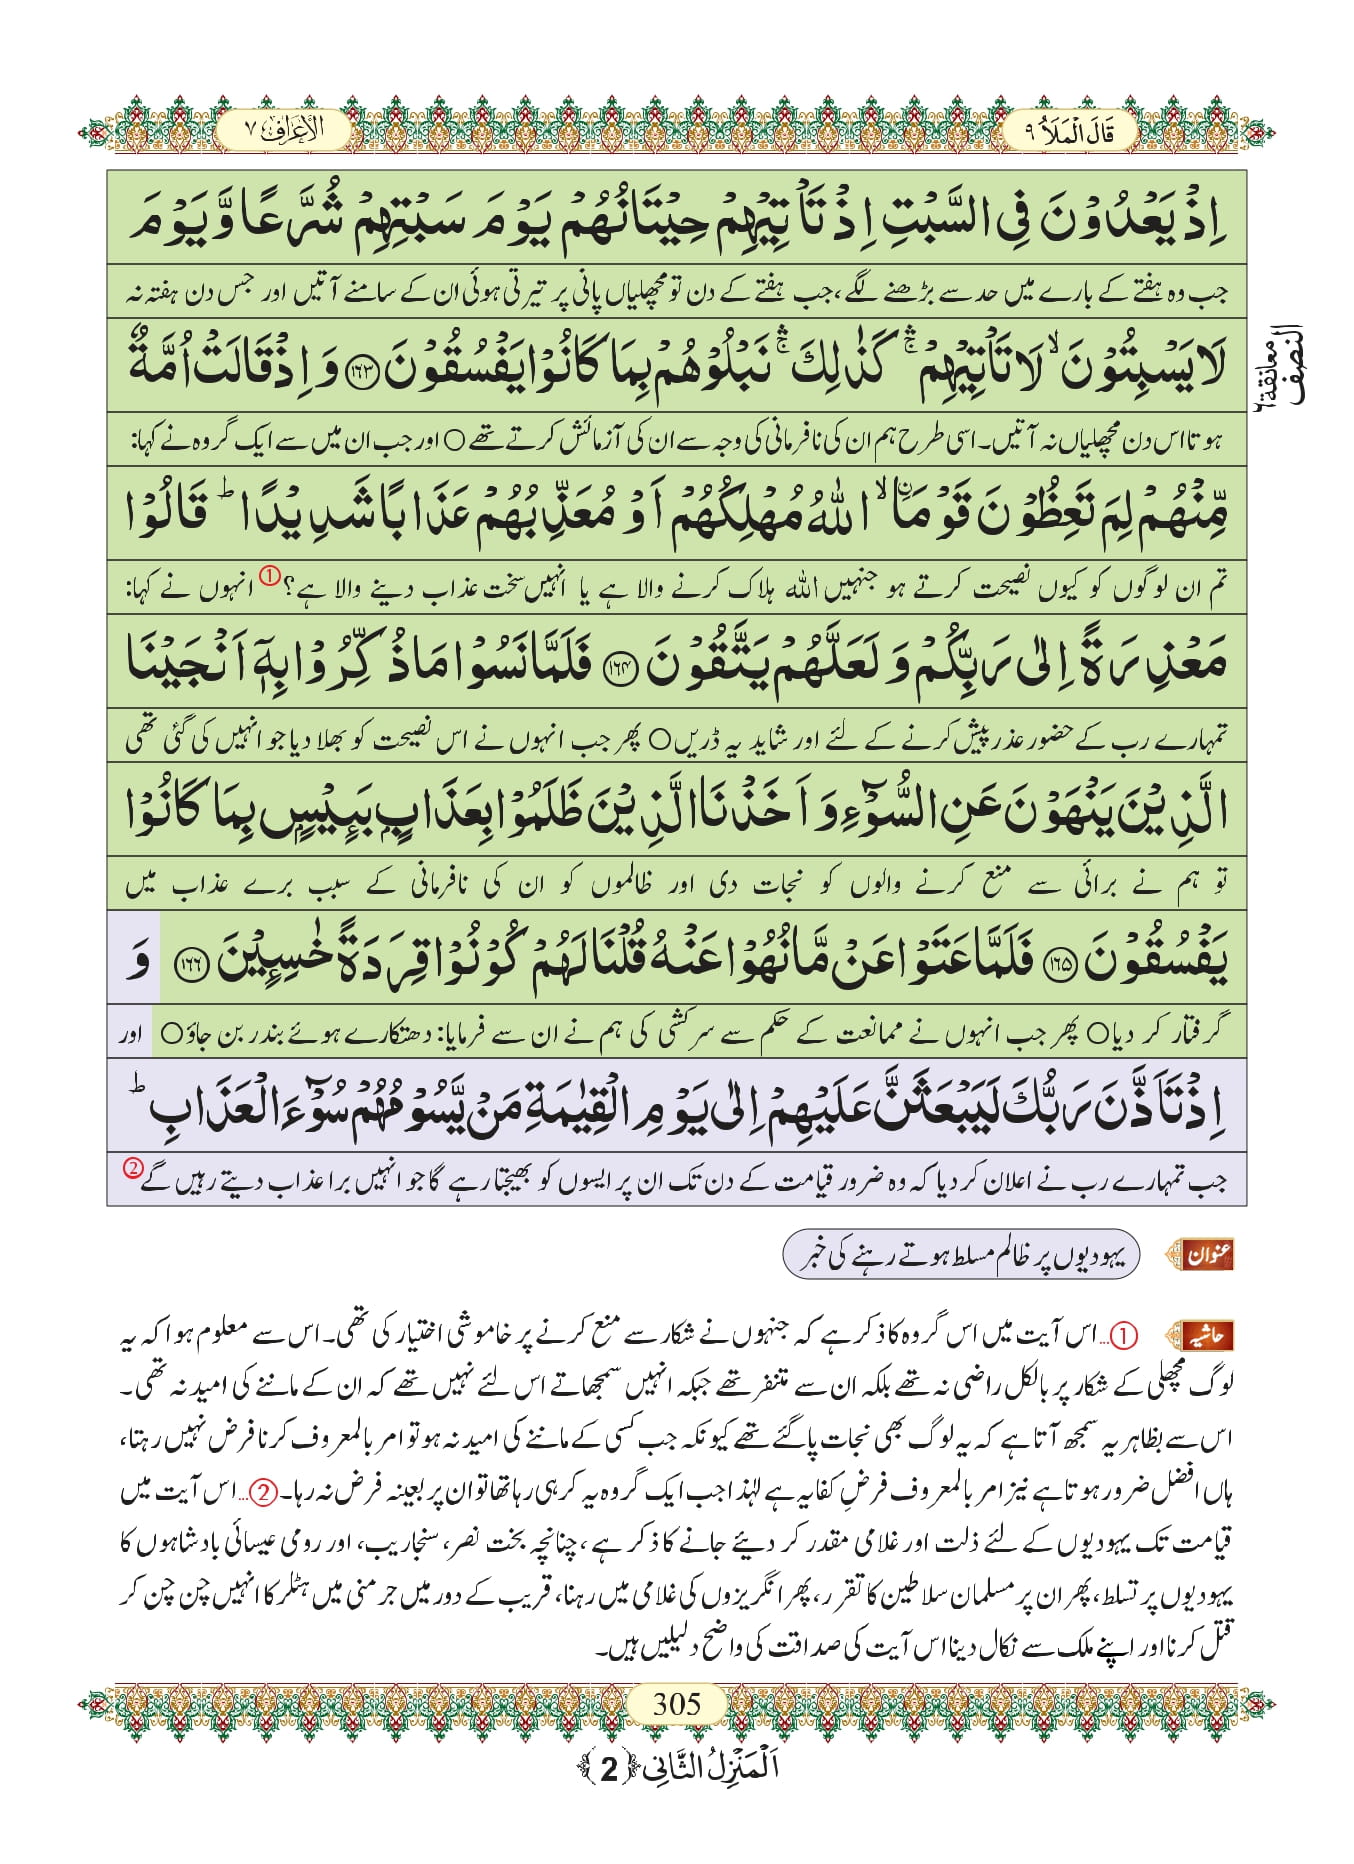 قَالَ الْمَلَاُ ۹
الْاَعْرَاف ۷
اِذْ یَعْدُوْنَ فِی السَّبْتِ اِذْ تَاْتِیْهِمْ حِیْتَانُهُمْ یَوْمَ سَبْتِهِمْ شُرَّعًا وَّ یَوْمَ
جب وہ ہفتے کے بارے میں حد سے بڑھنے لگے، جب ہفتے کے دن تو مچھلیاں پانی پر تیرتی ہوئی ان کے سامنے آتیں اور جس دن ہفتہ نہ
لَا یَسْبِتُوْنَۙ لَا تَاْتِیْهِمْ ۚۛ كَذٰلِكَ ۚۛ نَبْلُوْهُمْ بِمَا كَانُوْا یَفْسُقُوْنَ ﴿۱۶۳﴾ وَ اِذْ قَالَتْ اُمَّةٌ
النصف
معانقة ۲
ہوتا اس دن مچھلیاں نہ آتیں۔ اسی طرح ہم ان کی نافرمانی کی وجہ سے ان کی آزمائش کرتے تھے ○ اور جب ان میں سے ایک گروہ نے کہا:
مِّنْهُمْ لِمَ تَعِظُوْنَ قَوْمَاۙ اﰳللّٰهُ مُهْلِكُهُمْ اَوْ مُعَذِّبُهُمْ عَذَابًا شَدِیْدًاؕ قَالُوْا
تم ان لوگوں کو کیوں نصیحت کرتے ہو جنہیں اللہ ہلاک کرنے والا ہے یا انہیں سخت عذاب دینے والا ہے؟① انہوں نے کہا:
مَعْذِرَةً اِلٰى رَبِّكُمْ وَ لَعَلَّهُمْ یَتَّقُوْنَ ﴿۱۶۴﴾ فَلَمَّا نَسُوْا مَا ذُكِّرُوْا بِهٖۤ اَنْجَیْنَا
تمہارے رب کے حضور عذر پیش کرنے کے لئے اور شاید یہ ڈریں ○ پھر جب انہوں نے اس نصیحت کو بھلا دیا جو انہیں کی گئی تھی
الَّذِیْنَ یَنْهَوْنَ عَنِ السُّوْٓءِ وَ اَخَذْنَا الَّذِیْنَ ظَلَمُوْا بِعَذَابٍۭ بَىٕیْسٍۭ بِمَا كَانُوْا
تو ہم نے برائی سے منع کرنے والوں کو نجات دی اور ظالموں کو ان کی نافرمانی کے سبب برے عذاب میں
یَفْسُقُوْنَ ﴿۱۶۵﴾ فَلَمَّا عَتَوْا عَنْ مَّا نُهُوْا عَنْهُ قُلْنَا لَهُمْ كُوْنُوْا قِرَدَةً خٰسِىٕیْنَ ﴿۱۶۶﴾ وَ
گرفتار کر دیا ○ پھر جب انہوں نے ممانعت کے حکم سے سرکشی کی ہم نے ان سے فرمایا: دھتکارے ہوئے بندر بن جاؤ ○ اور
اِذْ تَاَذَّنَ رَبُّكَ لَیَبْعَثَنَّ عَلَیْهِمْ اِلٰى یَوْمِ الْقِیٰمَةِ مَنْ یَّسُوْمُهُمْ سُوْٓءَ الْعَذَابِؕ
جب تمہارے رب نے اعلان کر دیا کہ وہ ضرور قیامت کے دن تک ان پر ایسوں کو بھیجتا رہے گا جو انہیں برا عذاب دیتے رہیں گے②
عنوان یہودیوں پر ظالم مسلط ہوتے رہنے کی خبر
حاشیہ ①... اس آیت میں اس گروہ کا ذکر ہے کہ جنہوں نے شکار سے منع کرنے پر خاموشی اختیار کی تھی۔ اس سے معلوم ہوا کہ یہ
لوگ مچھلی کے شکار پر بالکل راضی نہ تھے بلکہ ان سے متنفر تھے جبکہ انہیں سمجھاتے اس لئے نہیں تھے کہ ان کے ماننے کی امید نہ تھی۔
اس سے بظاہر یہ سمجھ آتا ہے کہ یہ لوگ بھی نجات پا گئے تھے کیونکہ جب کسی کے ماننے کی امید نہ ہو تو امر بالمعروف کرنا فرض نہیں رہتا،
ہاں افضل ضرور ہوتا ہے نیز امر بالمعروف فرضِ کفایہ ہے لہٰذا جب ایک گروہ یہ کر ہی رہا تھا تو ان پر بعینہ فرض نہ رہا۔ ②... اس آیت میں
قیامت تک یہودیوں کے لئے ذلت اور غلامی مقدر کر دیئے جانے کا ذکر ہے، چنانچہ بخت نصر، سنجاریب، اور رومی عیسائی بادشاہوں کا
یہودیوں پر تسلط، پھر ان پر مسلمان سلاطین کا تقرر، پھر انگریزوں کی غلامی میں رہنا، قریب کے دور میں جرمنی میں ہٹلر کا انہیں چن چن کر
قتل کرنا اور اپنے ملک سے نکال دینا اس آیت کی صداقت کی واضح دلیلیں ہیں۔
305
اَلْمَنْزِلُ الثَّانِی ﴿2﴾